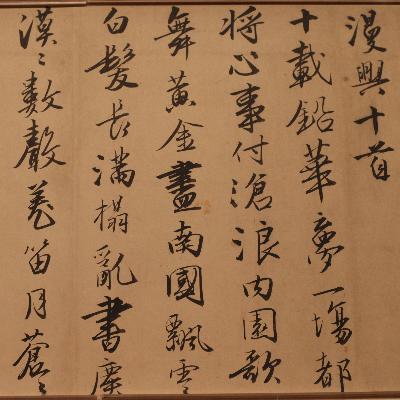 漫興十首
十載鉛華夢一場都
將心事付滄浪內園歌
舞黃金盡南國飄零
白髮長滿榻亂書塵
漠〻數聲羌笛月蒼〻